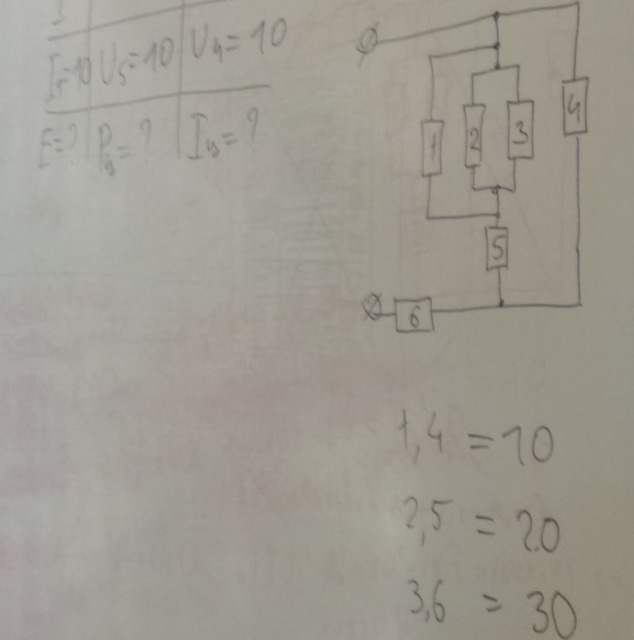 I=10 U5=10 U4=10
E=? P3=? I3=?
1
2
3
4
5
6
1,4 = 10
2,5 = 20
3,6 = 30